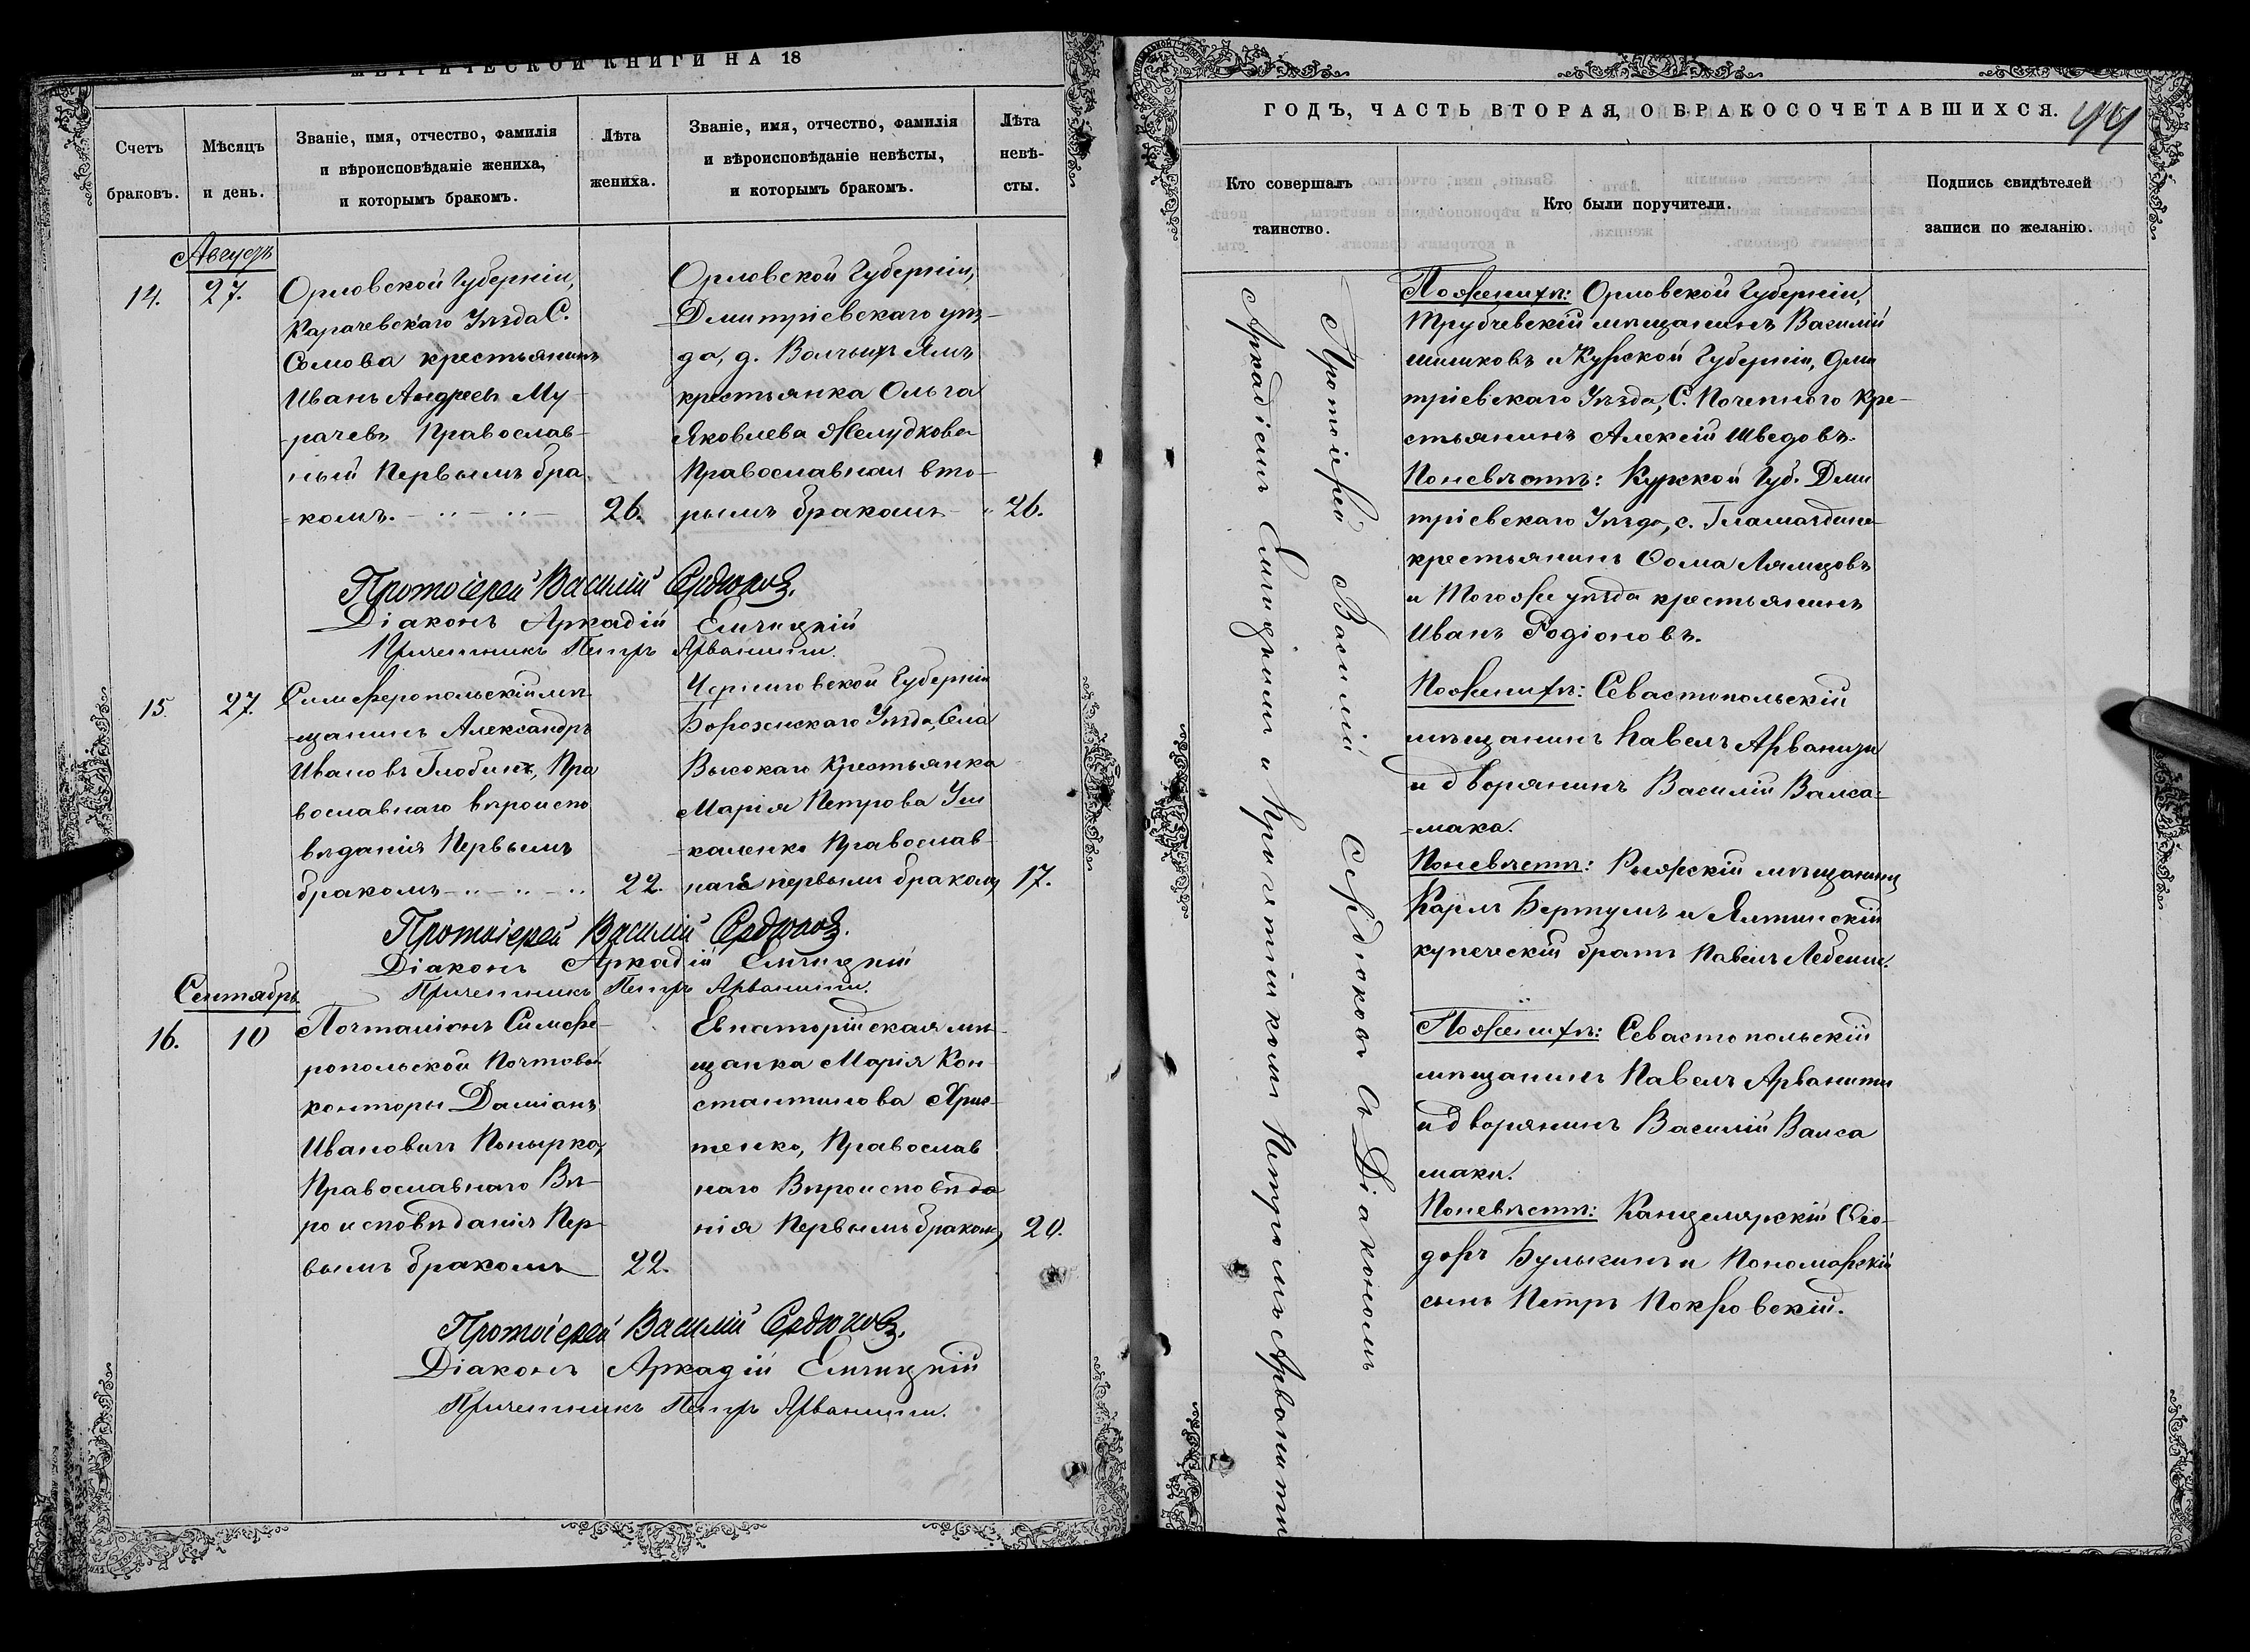 МЕТРИЧЕСКОЙ КНИГИ НА 18
Счетъ
браковъ.
Мѣсяцъ
и день.
Званіе, имя, отчество, фамилія
и вѣроисповѣданіе жениха,
и которымъ бракомъ.
Лѣта
жениха.
Званіе, имя, отчество, фамилія
и вѣроисповѣданіе невѣсты,
и которымъ бракомъ.
Лѣта
невѣ-
сты.
Августъ
14.
27.
Орловской Губерніи,
Карачевскаго Уѣзда С.
Сомова крестьянинъ
Иванъ Андреевъ Му-
-рачевъ Православ-
ный Первымъ бра-
-комъ.
26.
Орловской Губерніи,
Дмитріевскаго уѣз-
да, д. Волчьихъ Ямъ
крестьянка Ольга
Яковлева Желудкова
Православная вто-
рымъ бракомъ
26.
Протоіерей Василій Сердюковъ.
Діаконъ Аркадій
Причетникъ Петръ Арванити.
15.
27.
Симферопольскій мѣ-
-щанинъ Александръ
Ивановъ Глобинъ, Пра
вославнаго вѣроиспо
вѣданія Первымъ
бракомъ
22.
Черниговской Губерніи
Борзенскаго Уѣзда, Села
Высокаго Крестьянка
Марія Петрова
Православ-
ная первымъ бракомъ
17.
Протоіерей Василій Сердюковъ.
Діаконъ Аркадій
Причетникъ Петръ Арванити.
Сентябрь
16.
10
Почталіонъ Симфе-
ропольской Почтовой
конторы Даміанъ
Ивановичъ Копырко,
Православнаго Вѣ-
роисповѣданія Пер-
вымъ бракомъ
22.
Евпаторійская мѣ-
щанка Марія Кон-
стантинова Хрис-
тенко, Православ
наго Вѣроисповѣда
нія Первымъ бракомъ
20.
Протоіерей Василій Сердюковъ.
Діаконъ Аркадій
Причетникъ Петръ Арванити.
ГОДЪ, ЧАСТЬ ВТОРАЯ, О БРАКОСОЧЕТАВШИХСЯ.
Кто совершалъ
таинство.
Кто были поручители.
Подпись свидѣтелей
записи по желанію.
Протоіерей Василій Сердюковъ съ Діакономъ
Аркадіемъ и Причетникомъ Петромъ Арванити
По женихѣ: Орловской Губерніи,
Трубчевскій мѣщанинъ Василій
Шишковъ и Курской Губерніи, Дми
тріевскаго Уѣзда, С. Почепного Кре-
стьянинъ Алексій Шведовъ.
По невѣстѣ: Курской Губ. Дми
тріевскаго Уѣзда, с.
крестьянинъ Ѳома Лямцовъ
и Того же уѣзда крестьянинъ
Иванъ Родіоновъ.
По женихѣ: Севастопольскій
мѣщанинъ Павелъ Арванити
и дворянинъ Василій Валса-
-мака.
По невѣстѣ: мѣщанинъ
Карлъ и Ялтинскій
купеческій братъ Павелъ
По женихѣ: Севастопольскій
мѣщанинъ Павелъ Арванити
и дворянинъ Василій Валса
маки.
По невѣстѣ: Канцелярскій Ѳео-
доръ Булыгинъ и Пономарскій
сынъ Петръ Покровскій.